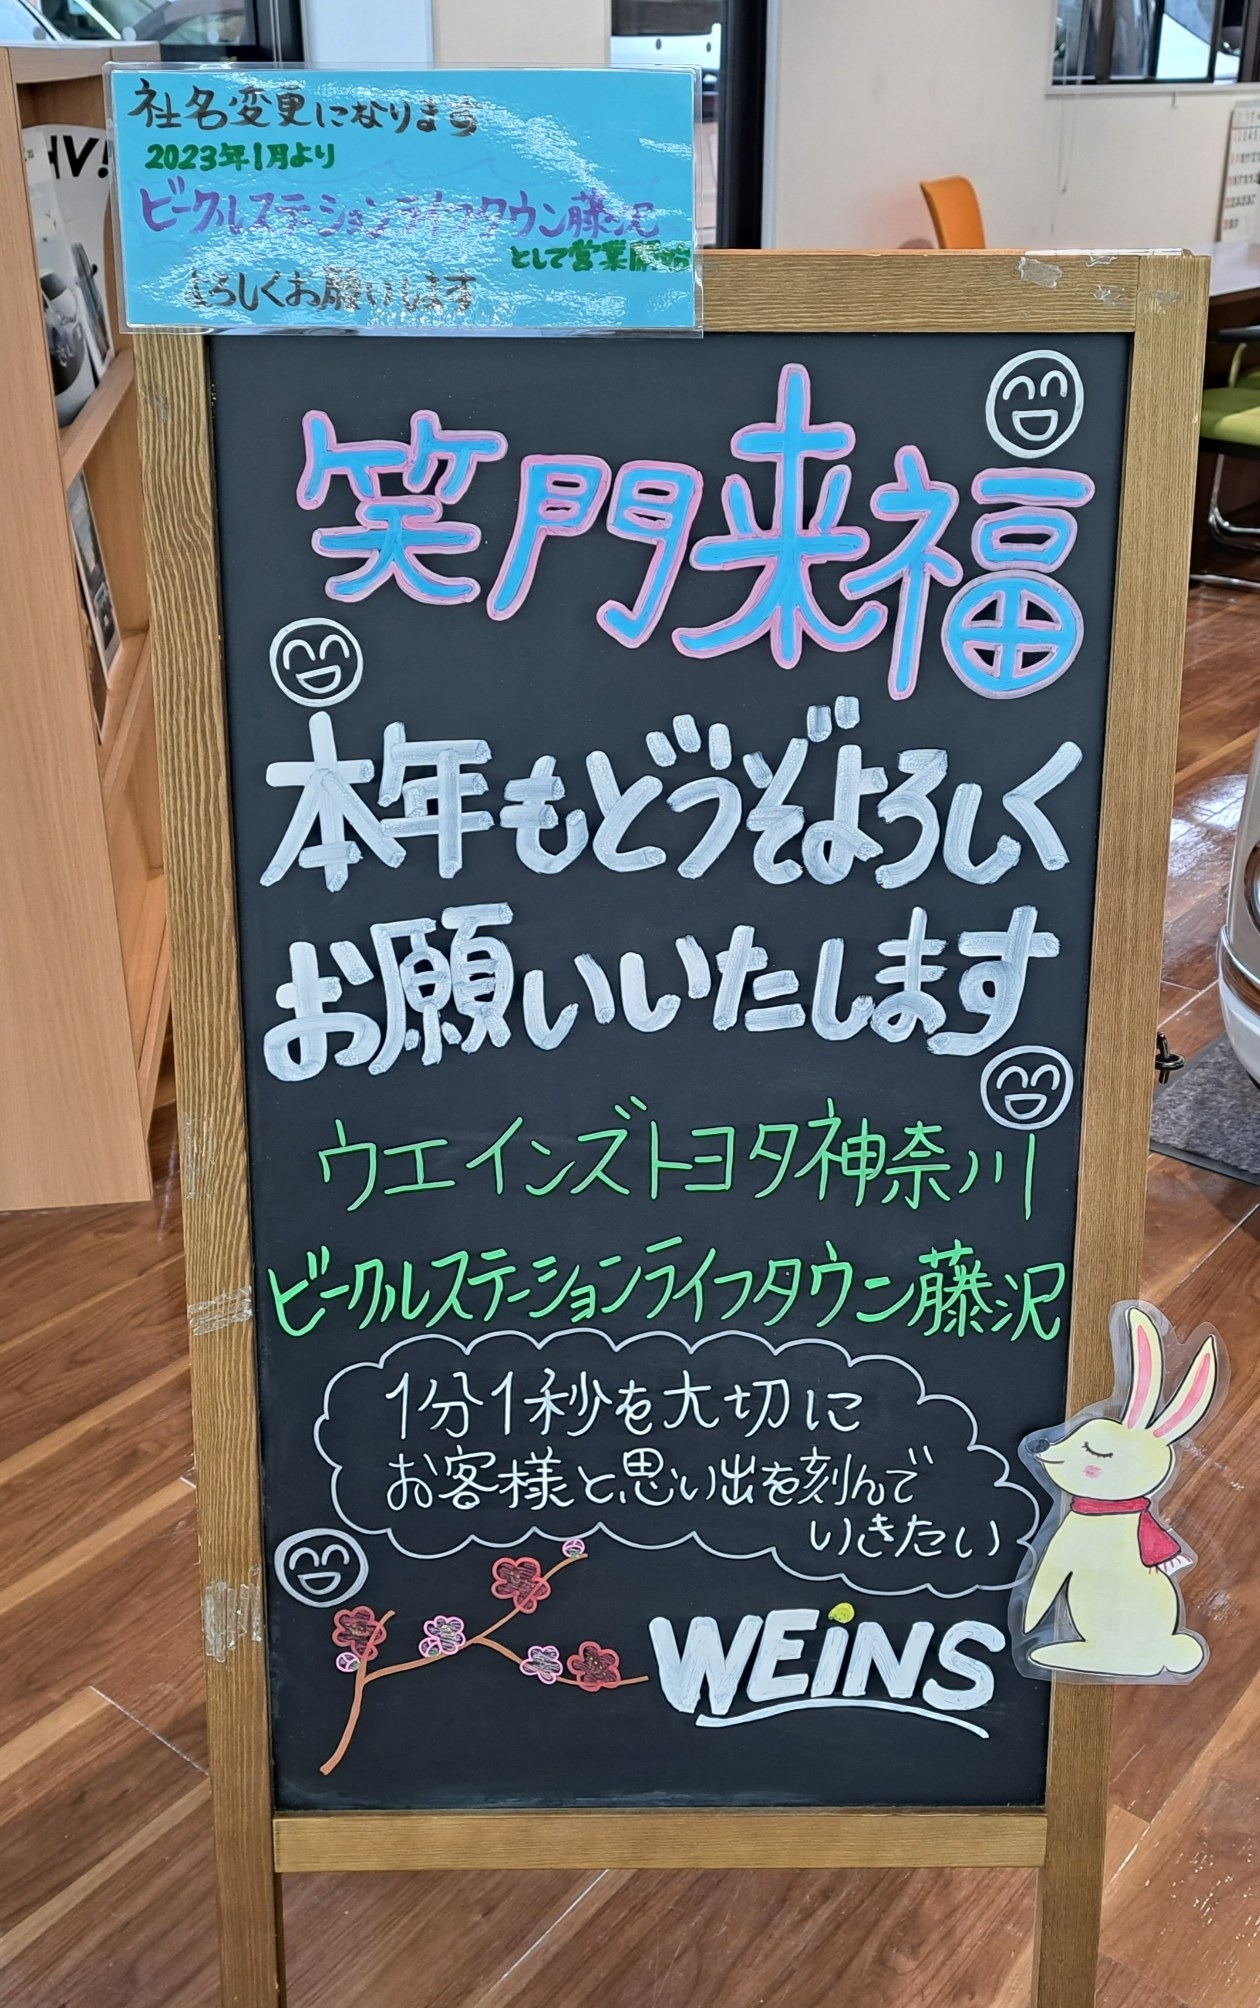 社名変更になります
2023年1月より
ビークルステーションライフタウン藤沢
として営業開始
よろしくお願いします
笑門来福
本年もどうぞよろしく
お願いいたします
ウエインズトヨタ神奈川
ビークルステーションライフタウン藤沢
1分1秒を大切に
お客様と思い出を刻んで
いきたい
WEiNS